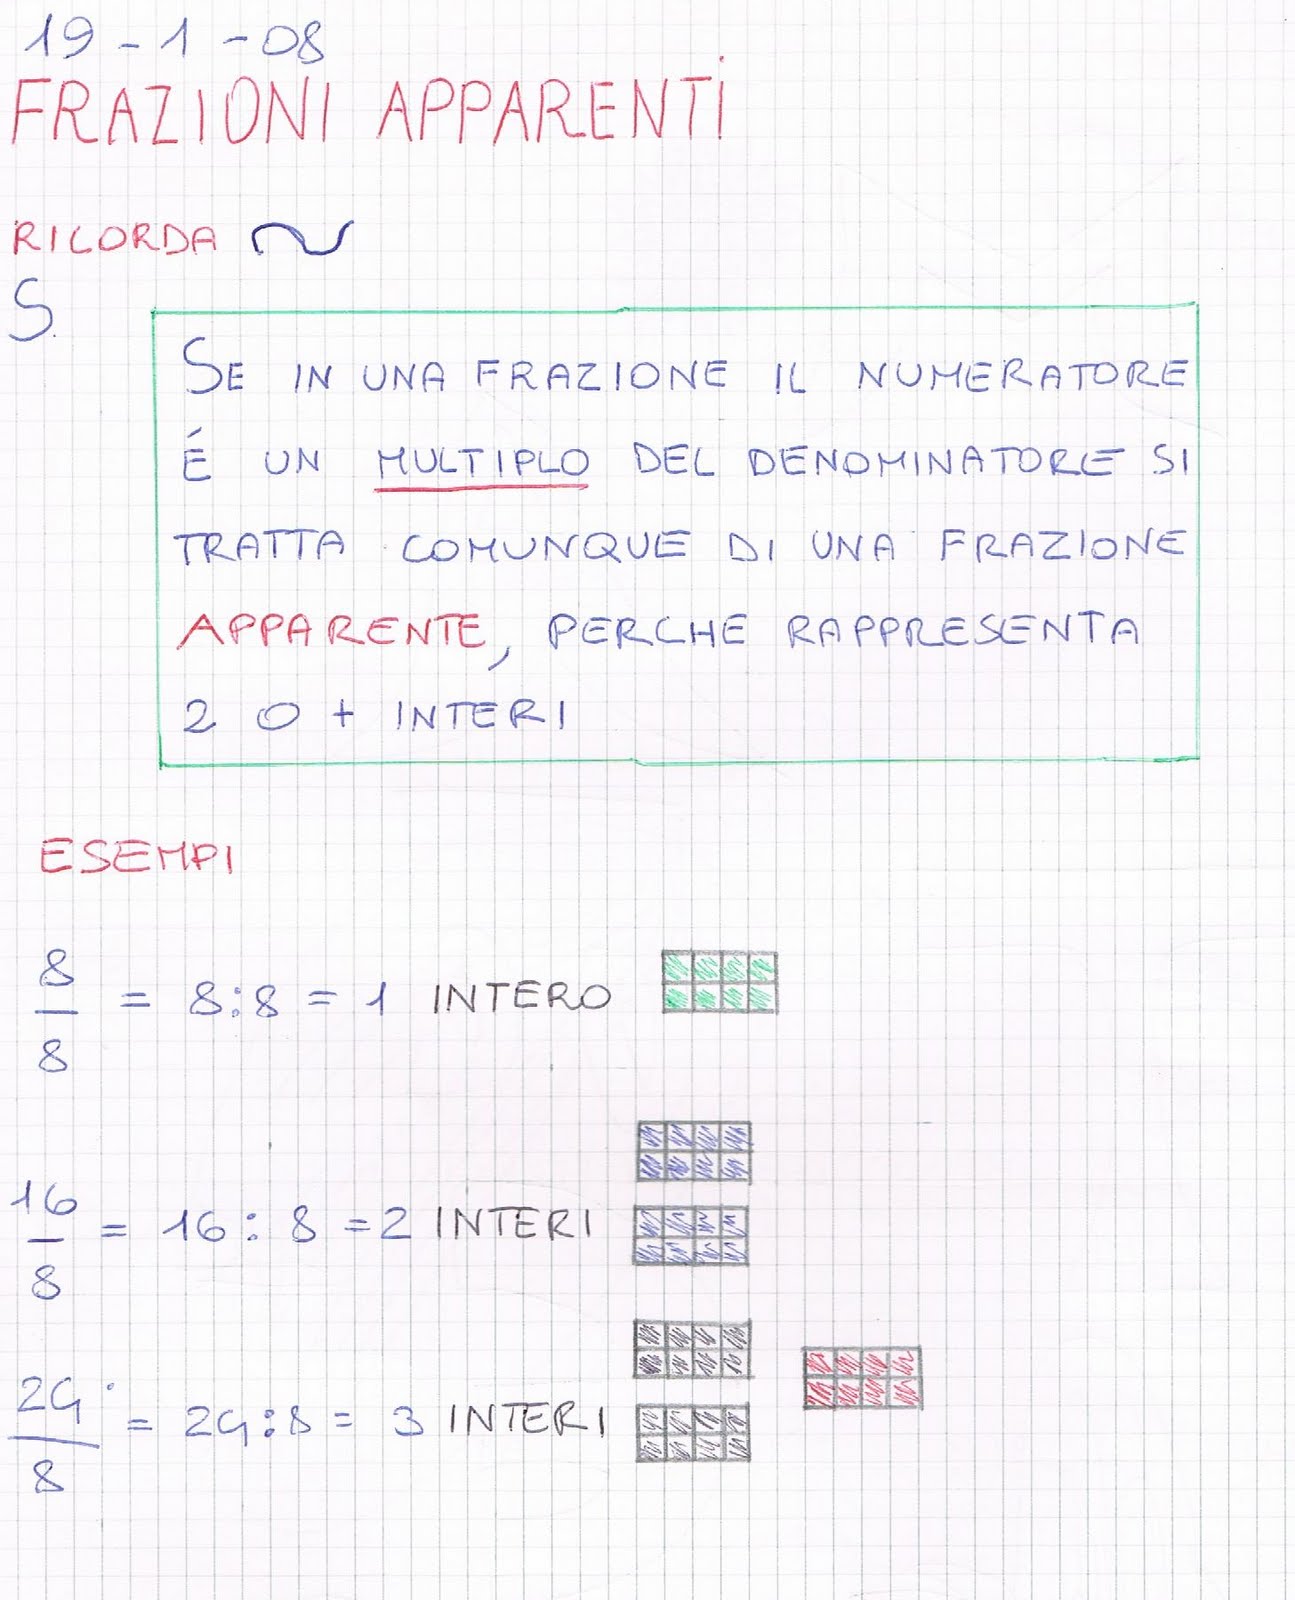 19-1-08
FRAZIONI APPARENTI
RICORDA
S.
SE IN UNA FRAZIONE IL NUMERATORE
É UN MULTIPLO DEL DENOMINATORE SI
TRATTA COMUNQUE DI UNA FRAZIONE
APPARENTE, PERCHE RAPPRESENTA
2 O + INTERI
ESEMPI
8/8 = 8:8 = 1 INTERO
16/8 = 16:8 = 2 INTERI
24/8 = 24:8 = 3 INTERI